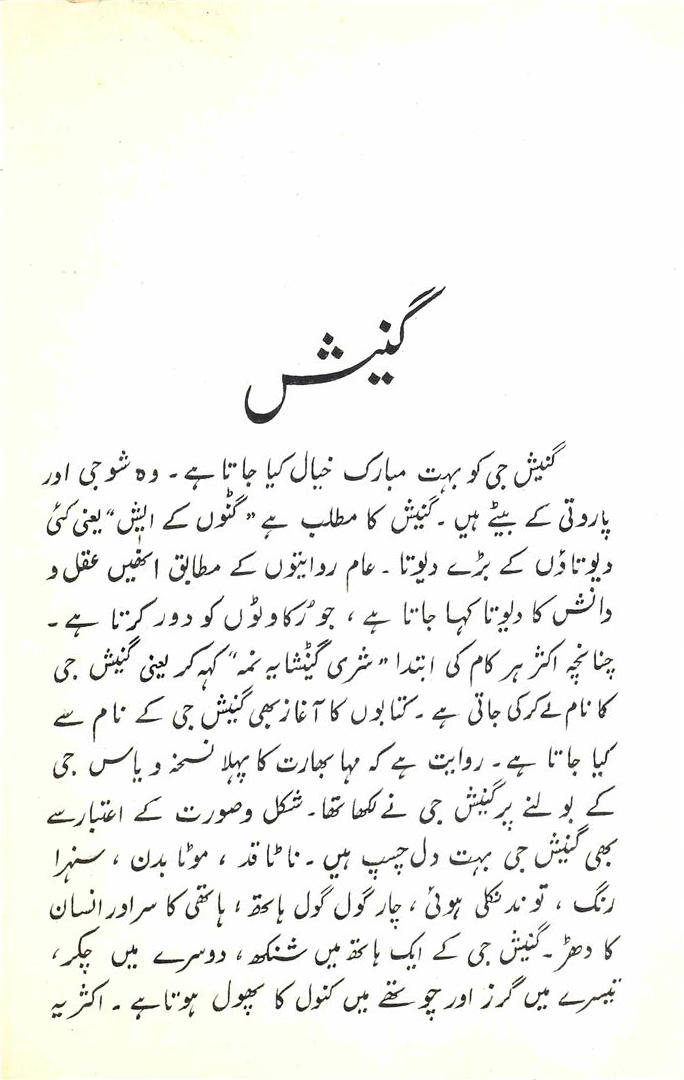 گنیش
گنیش جی کو بہت مبارک خیال کیا جاتا ہے۔ وہ شو جی اور
پاروتی کے بیٹے ہیں۔ گنیش کا مطلب ہے ”گنوں کے ایش“ یعنی کئی
دیوتاؤں کے بڑے دیوتا۔ عام روایتوں کے مطابق انھیں عقل و
دانش کا دیوتا کہا جاتا ہے، جو رُکاوٹوں کو دور کرتا ہے۔
چنانچہ اکثر ہر کام کی ابتدا ”شری گنیشایہ نمہ“ کہہ کر یعنی گنیش جی
کا نام لے کر کی جاتی ہے۔ کتابوں کا آغاز بھی گنیش جی کے نام سے
کیا جاتا ہے۔ روایت ہے کہ مہا بھارت کا پہلا نسخہ ویاس جی
کے بولنے پر گنیش جی نے لکھا تھا۔ شکل و صورت کے اعتبار سے
بھی گنیش جی بہت دل چسپ ہیں۔ ناٹا قد، موٹا بدن، سنہرا
رنگ، توند نکلی ہوئی، چار گول گول ہاتھ، ہاتھی کا سر اور انسان
کا دھڑ۔ گنیش جی کے ایک ہاتھ میں شنکھ، دوسرے میں چکر،
تیسرے میں گرز اور چوتھے میں کنول کا پھول ہوتا ہے۔ اکثر یہ